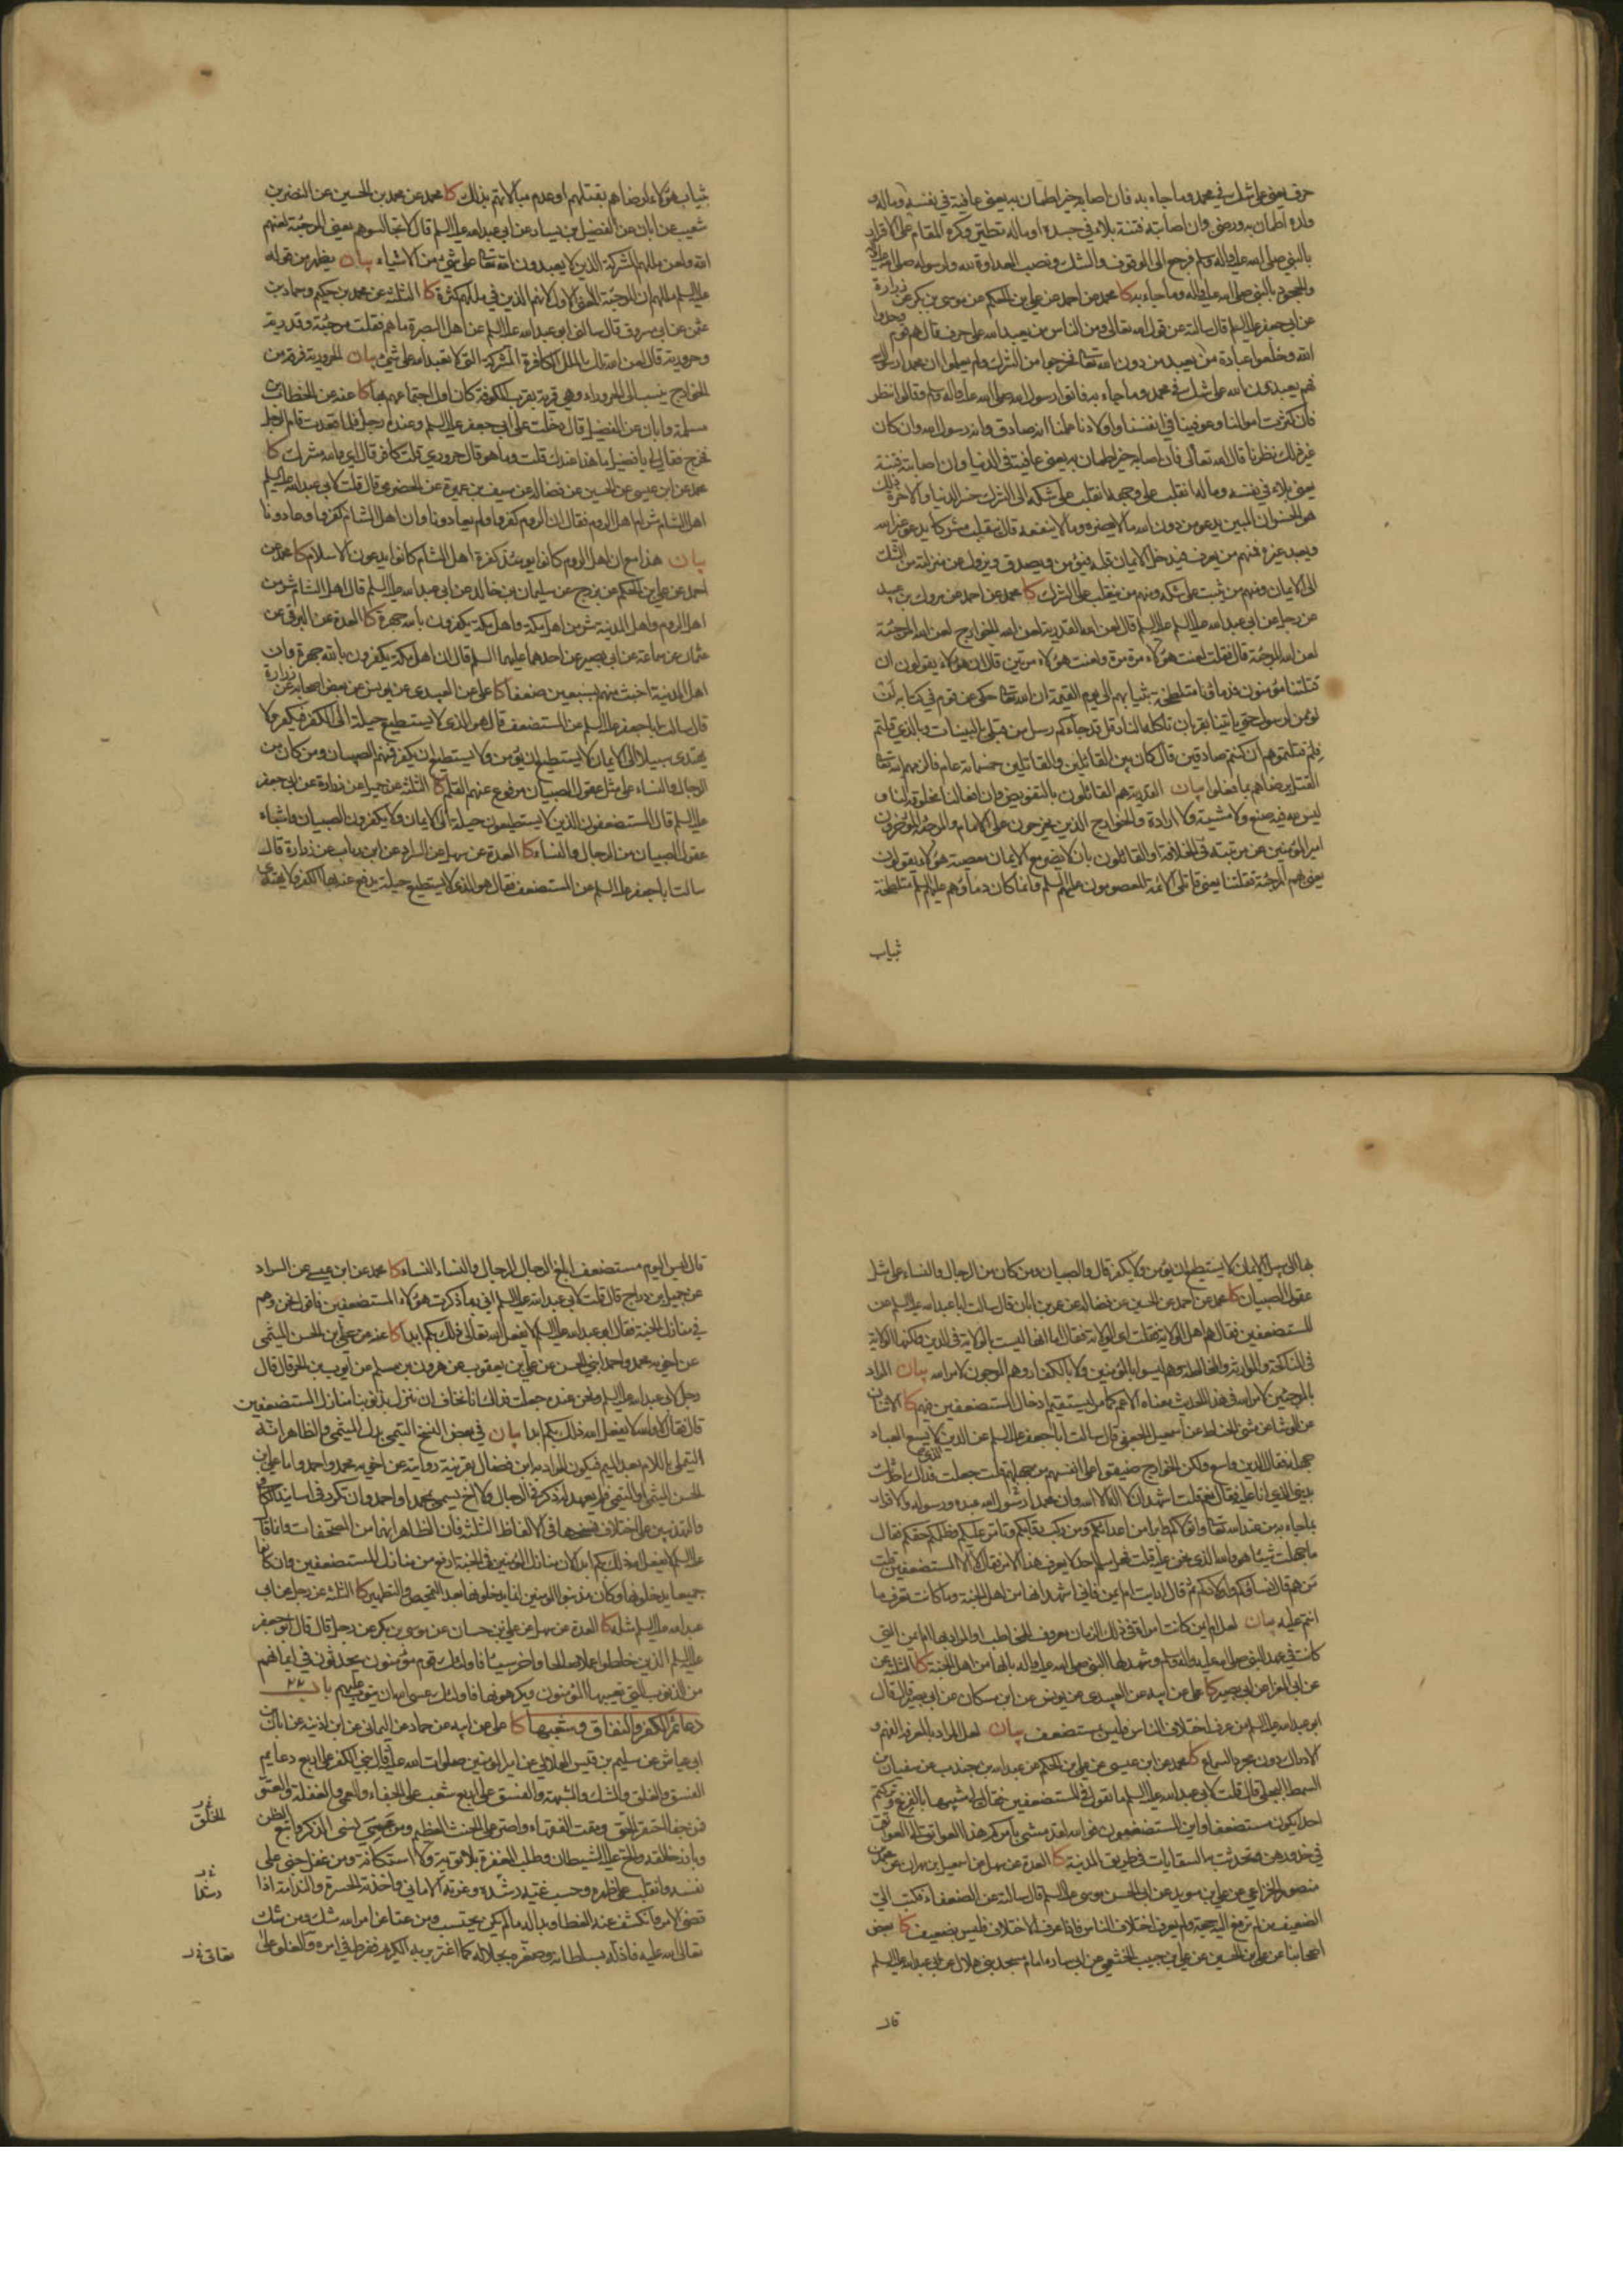 حرف يعني على شك في محمد وما جاء به فان اصابه خير اطمان به يعني عافية في نفسه وماله و
ولده اطمان به ورضي وان اصابته فتنة بلاء في جسده او ماله تطير وكره المقام على الاقرار
بالنبي صلى الله عليه واله وسلم فرجع الى الوقوف والشك ونصب العداوة لله ولرسوله صلى الله عليه واله
والجحود بالنبي صلى الله عليه واله وما جاء به كا محمد عن احمد عن علي بن الحكم عن موسى بن بكر عن زرارة
عن ابي جعفر عليه السلم قال سالته عن قول الله تعالى ومن الناس من يعبد الله على حرف قال هم قوم وحدوا
الله وخلعوا عبادة من يعبد من دون الله تعالى فخرجوا من الشرك ولم يعلموا ان محمدا رسول الله
فهم يعبدون الله على شك في محمد وما جاء به فاتوا رسول الله صلى الله عليه واله وسلم وقالوا ننظر
فان كثرت اموالنا وعوفينا في انفسنا واولادنا علمنا انه صادق وانه رسول الله وان كان
غير ذلك نظرنا قال الله تعالى فان اصابه خير اطمان به يعني عافية في الدنيا وان اصابته فتنة
يعني بلاء في نفسه وماله انقلب على وجهه انقلب على شكه الى الشرك خسر الدنيا والاخرة ذلك
هو الخسران المبين يدعو من دون الله ما لا يضره وما لا ينفعه قال ينقلب مشركا يدعو غير الله
ويعبد غيره فمنهم من يعرف فيدخل الايمان قلبه فيؤمن ويصدق ويزول عن منزلته من الشك
الى الايمان ومنهم من يثبت على شكه ومنهم من ينقلب الى الشرك كا محمد عن احمد عن مروك بن عبيد
عن رجل عن ابي عبد الله عليه السلم قال لعن الله القدرية لعن الله الخوارج لعن الله المرجئة
لعن الله المرجئة قال قلت لعنت هؤلاء مرة مرة ولعنت هؤلاء مرتين قال ان هؤلاء يقولون ان
قتلتنا مؤمنون فدماؤنا متلطخة بثيابهم الى يوم القيمة ان الله تعالى حكى عن قوم في كتابه لن
نؤمن لرسول حتى ياتينا بقربان تاكله النار قل قد جاءكم رسل من قبلي بالبينات وبالذي قلتم
فلم قتلتموهم ان كنتم صادقين قال كان بين القاتلين والقائلين خمسمائة عام فالزمهم الله تعالى
القتل برضاهم بما فعلوا بيان القدرية هم القائلون بالتفويض وان افعالنا مخلوقة لنا و
ليس لله فيه صنع ولا مشية ولا ارادة والخوارج الذين يخرجون على الامام والمرجئة المؤخرون
امير المؤمنين عن مرتبته في الخلافة او القائلون بان لا يضر مع الايمان معصية هؤلاء يقولون
يعني بهم المرجئة قتلتنا يعني قاتلي الائمة المعصومون عليهم السلم وانما كان دماؤهم عليهم السلم متلطخة
ثياب
بثياب هؤلاء لرضاهم بقتلهم او عدم مبالاتهم بذلك كا محمد عن محمد بن الحسين عن النضر بن
شعيب عن ابان عن الفضيل بن يسار عن ابي عبد الله عليه السلم قال لا تجالسوهم يعني المرجئة لعنهم
الله ولعن مللهم المشركة الذين لا يعبدون الله تعالى على شيء من الاشياء بيان يظهر من قوله
عليه السلم مللهم ان المرجئة المعنى الاول لانهم الذين في مللهم كثرة كا الثلثة عن محمد بن حكيم وحماد بن
عثمن عن ابي مسروق قال سالني ابو عبد الله عليه السلم عن اهل البصرة ما هم فقلت مرجئة وقدرية
وحرورية قال لعن الله تلك الملل الكافرة المشركة التي لا تعبد الله على شيء بيان الحرورية فرقة من
الخوارج ينسب الى الحروراء وهي قرية بقرب الكوفة كان اول اجتماعهم بها كا عنه عن الخطاب بن
مسلمة وابان عن الفضيل قال دخلت على ابي جعفر عليه السلم وعنده رجل فلما قعدت قام الرجل
فخرج فقال لي يا فضيل ما هذا عندك قلت وما هو قال حروري قلت كافر قال اي والله مشرك كا
محمد عن ابن عيسى عن الحسين عن فضالة عن سيف بن عميرة عن الحضرمي قال قلت لابي عبد الله عليه السلم
اهل الشام شر ام اهل الروم فقال ان الروم كفروا ولم يعادونا وان اهل الشام كفروا وعادونا
بيان هذا مع ان اهل الروم كانوا يومئذ كفرة اهل الشام كانوا يدعون الاسلام كا محمد عن
احمد عن علي بن الحكم عن بزرج عن سليمان بن خالد عن ابي عبد الله عليه السلم قال اهل الشام شر من
اهل الروم واهل المدينة شر من اهل مكة واهل مكة يكفرون بالله جهرة كا العدة عن البرقي عن
عثمان عن سماعة عن ابي بصير عن احدهما عليهما السلم قال ان اهل مكة يكفرون بالله جهرة وان
اهل المدينة اخبث منهم بسبعين ضعفا كا علي عن العبيدي عن يونس عن بعض اصحابه عن زرارة
قال سالت ابا جعفر عليه السلم عن المستضعف قال هو الذي لا يستطيع حيلة الى الكفر فيكفر ولا
يهتدي سبيلا الى الايمان لا يستطيع ان يؤمن ولا يستطيع ان يكفر فهم الصبيان ومن كان من
الرجال والنساء على مثل عقول الصبيان مرفوع عنهم القلم كا الثلثة عن جميل عن زرارة عن ابي جعفر
عليه السلم قال المستضعفون الذين لا يستطيعون حيلة الى الايمان ولا يكفرون الصبيان واشباه
عقول الصبيان من الرجال والنساء كا العدة عن سهل عن السراد عن ابن رئاب عن زرارة قال
سالت ابا جعفر عليه السلم عن المستضعف فقال هو الذي لا يستطيع حيلة يدفع عنه بها الكفر ولا يهتدي
بها الى سبيل الايمان لا يستطيع ان يؤمن ولا يكفر قال والصبيان ومن كان من الرجال والنساء على مثل
عقول الصبيان كا محمد عن احمد عن الحسين عن فضالة عن عمر بن ابان قال سالت ابا عبد الله عليه السلم عن
المستضعفين فقال هم اهل الولاية فقلت اي الولاية فقال اما انها ليست بالولاية في الدين ولكنها الولاية
في المناكحة والموارثة والمخالطة وهم ليسوا بالمؤمنين ولا بالكفار وهم المرجون لامر الله بيان المراد
بالمرجئين لامر الله في هذا الحديث معناه الاعم كما مر ليستقيم ادخال المستضعفين فيهم كا الاثنان
عن الوشا عن مثنى الحناط عن اسمعيل الجعفي قال سالت ابا جعفر عليه السلم عن الدين الذي لا يسع العباد
جهله فقال الدين واسع ولكن الخوارج ضيقوا على انفسهم من جهلهم قلت جعلت فداك فاحدثك
بديني الذي انا عليه فقال نعم قلت اشهد ان لا اله الا الله وان محمدا رسول الله عبده ورسوله والاقرار
بما جاء به من عند الله تعالى واتولاكم وابرا من اعدائكم ومن ركب رقابكم وتامر عليكم وظلمكم حقكم فقال
ما جهلت شيئا هو والله الذي نحن عليه قلت فهل سلم احد لا يعرف هذا الامر فقال لا الا المستضعفين قلت
من هم قال نساؤكم واولادكم ثم قال ارايت ام ايمن فاني اشهد انها من اهل الجنة وما كانت تعرف ما
انتم عليه بيان لعل ام ايمن كانت امراة في ذلك الزمان معروف للمخاطب او المراد بها ام ايمن التي
كانت في عهد النبي صلى الله عليه واله وسلم وشهد لها النبي صلى الله عليه واله بانها من اهل الجنة كا الثلثة عن
عن ابي المغرا عن ابي بصير كا علي عن ابيه عن العبيدي عن يونس عن ابن مسكان عن ابي بصير قال قال
ابو عبد الله عليه السلم من عرف اختلاف الناس فليس بمستضعف بيان لعل المراد بالمعرفة الفهم و
الادراك دون مجرد السماع كا محمد عن ابن عيسى عن علي بن الحكم عن عبد الله بن جندب عن سفيان بن
السمط البجلي قال قلت لابي عبد الله عليه السلم ما تقول في المستضعفين فقال لي شبيها بالفزع وتركتم
احدا يكون مستضعفا واين المستضعفون فوالله لقد مشى بامركم هذا العواتق الى العواتق
في خدورهن وتحدثت به السقايات في طريق المدينة كا العدة عن سهل عن اسمعيل بن مهران عن محمد بن
منصور الخزاعي عن علي بن سويد عن ابي الحسن موسى عليه السلم قال سالته عن الضعفاء فكتب الي
الضعيف من لم ترفع اليه حجة ولم يعرف اختلاف الناس فاذا عرف الاختلاف فليس بضعيف كا بعض
اصحابنا عن علي بن الحسين عن علي بن حبيب الخثعمي عن ابي سارة امام مسجد بني هلال عن ابي عبد الله عليه السلم
قال
قال ليس اليوم مستضعف ابلغ الرجال الرجال والنساء النساء كا محمد عن ابن عيسى عن السراد
عن جميل بن دراج قال قلت لابي عبد الله عليه السلم اني ربما ذكرت هؤلاء المستضعفين فاقول نحن وهم
في منازل الجنة فقال ابو عبد الله عليه السلم لا يفعل الله تعالى ذلك بكم ابدا كا عنه عن علي بن الحسن الميثمي
عن اخويه محمد واحمد ابني الحسن عن علي بن يعقوب عن هرون بن مسلم عن ايوب بن الحر قال قال
رجل لابي عبد الله عليه السلم ونحن عنده جعلت فداك انا نخاف ان ننزل بذنوبنا منازل المستضعفين
قال فقال لا والله لا يفعل الله ذلك بكم ابدا بيان في بعض النسخ التيمي بدل الميثمي والظاهر انه
التيملي باللام بعد الميم فيكون المراد به ابن فضال بقرينة روايته عن اخويه محمد واحمد واما علي بن
الحسن الميثمي او التيمي فلم يعهد له ذكر في الرجال ولا اخ يسمى بمحمد او احمد وان تكرر في اسانيد الكافي
والتهذيبين على اختلاف نسخها في الالفاظ الثلثة فان الظاهر انهما من المصحفات وانما قال
عليه السلم لا يفعل الله ذلك بكم ابدا لان منازل المؤمنين في الجنة ارفع من منازل المستضعفين وان كانوا
جميعا يدخلونها وكان مذنبو المؤمنين انما يدخلونها بعد التمحيص والتطهير كا الثلثة عن رجل عن ابي
عبد الله عليه السلم مثله كا العدة عن سهل عن علي بن حسان عن موسى بن بكر عن رجل قال قال ابو جعفر
عليه السلم الذين خلطوا عملا صالحا واخر سيئا فاولئك قوم مؤمنون يحدثون في ايمانهم
من الذنوب التي يعيبها المؤمنون ويكرهونها فاولئك عسى الله ان يتوب عليهم باب ٢٢
دعائم الكفر والنفاق وشعبهما كا علي عن ابيه عن حماد عن اليماني عن ابن اذينه عن ابان بن
ابي عياش عن سليم بن قيس الهلالي عن امير المؤمنين صلوات الله عليه قال بني الكفر على اربع دعايم
الفسق والغلو والشك والشبهة والفسق على اربع شعب على الجفاء والعمى والغفلة والعتو
فمن جفا احتقر الحق ومقت الفقهاء واصر على الحنث العظيم ومن عمي نسي الذكر واتبع الظن
وبارز خالقه والح عليه الشيطان وطلب المغفرة بلا توبة ولا استكانة ومن غفل جنى على
نفسه وانقلب على ظهره وحسب غيه رشده وغرته الاماني واخذته الحسرة والندامة اذا
قضي الامر وانكشف عنه الغطا وبدا له ما لم يكن يحتسب ومن عتا عن امر الله شك ومن شك
تعالى الله عليه فاذله بسلطانه وصغره بجلاله كما اغتر بربه الكريم وفرط في امره والغلو على
الخلق
رشدا